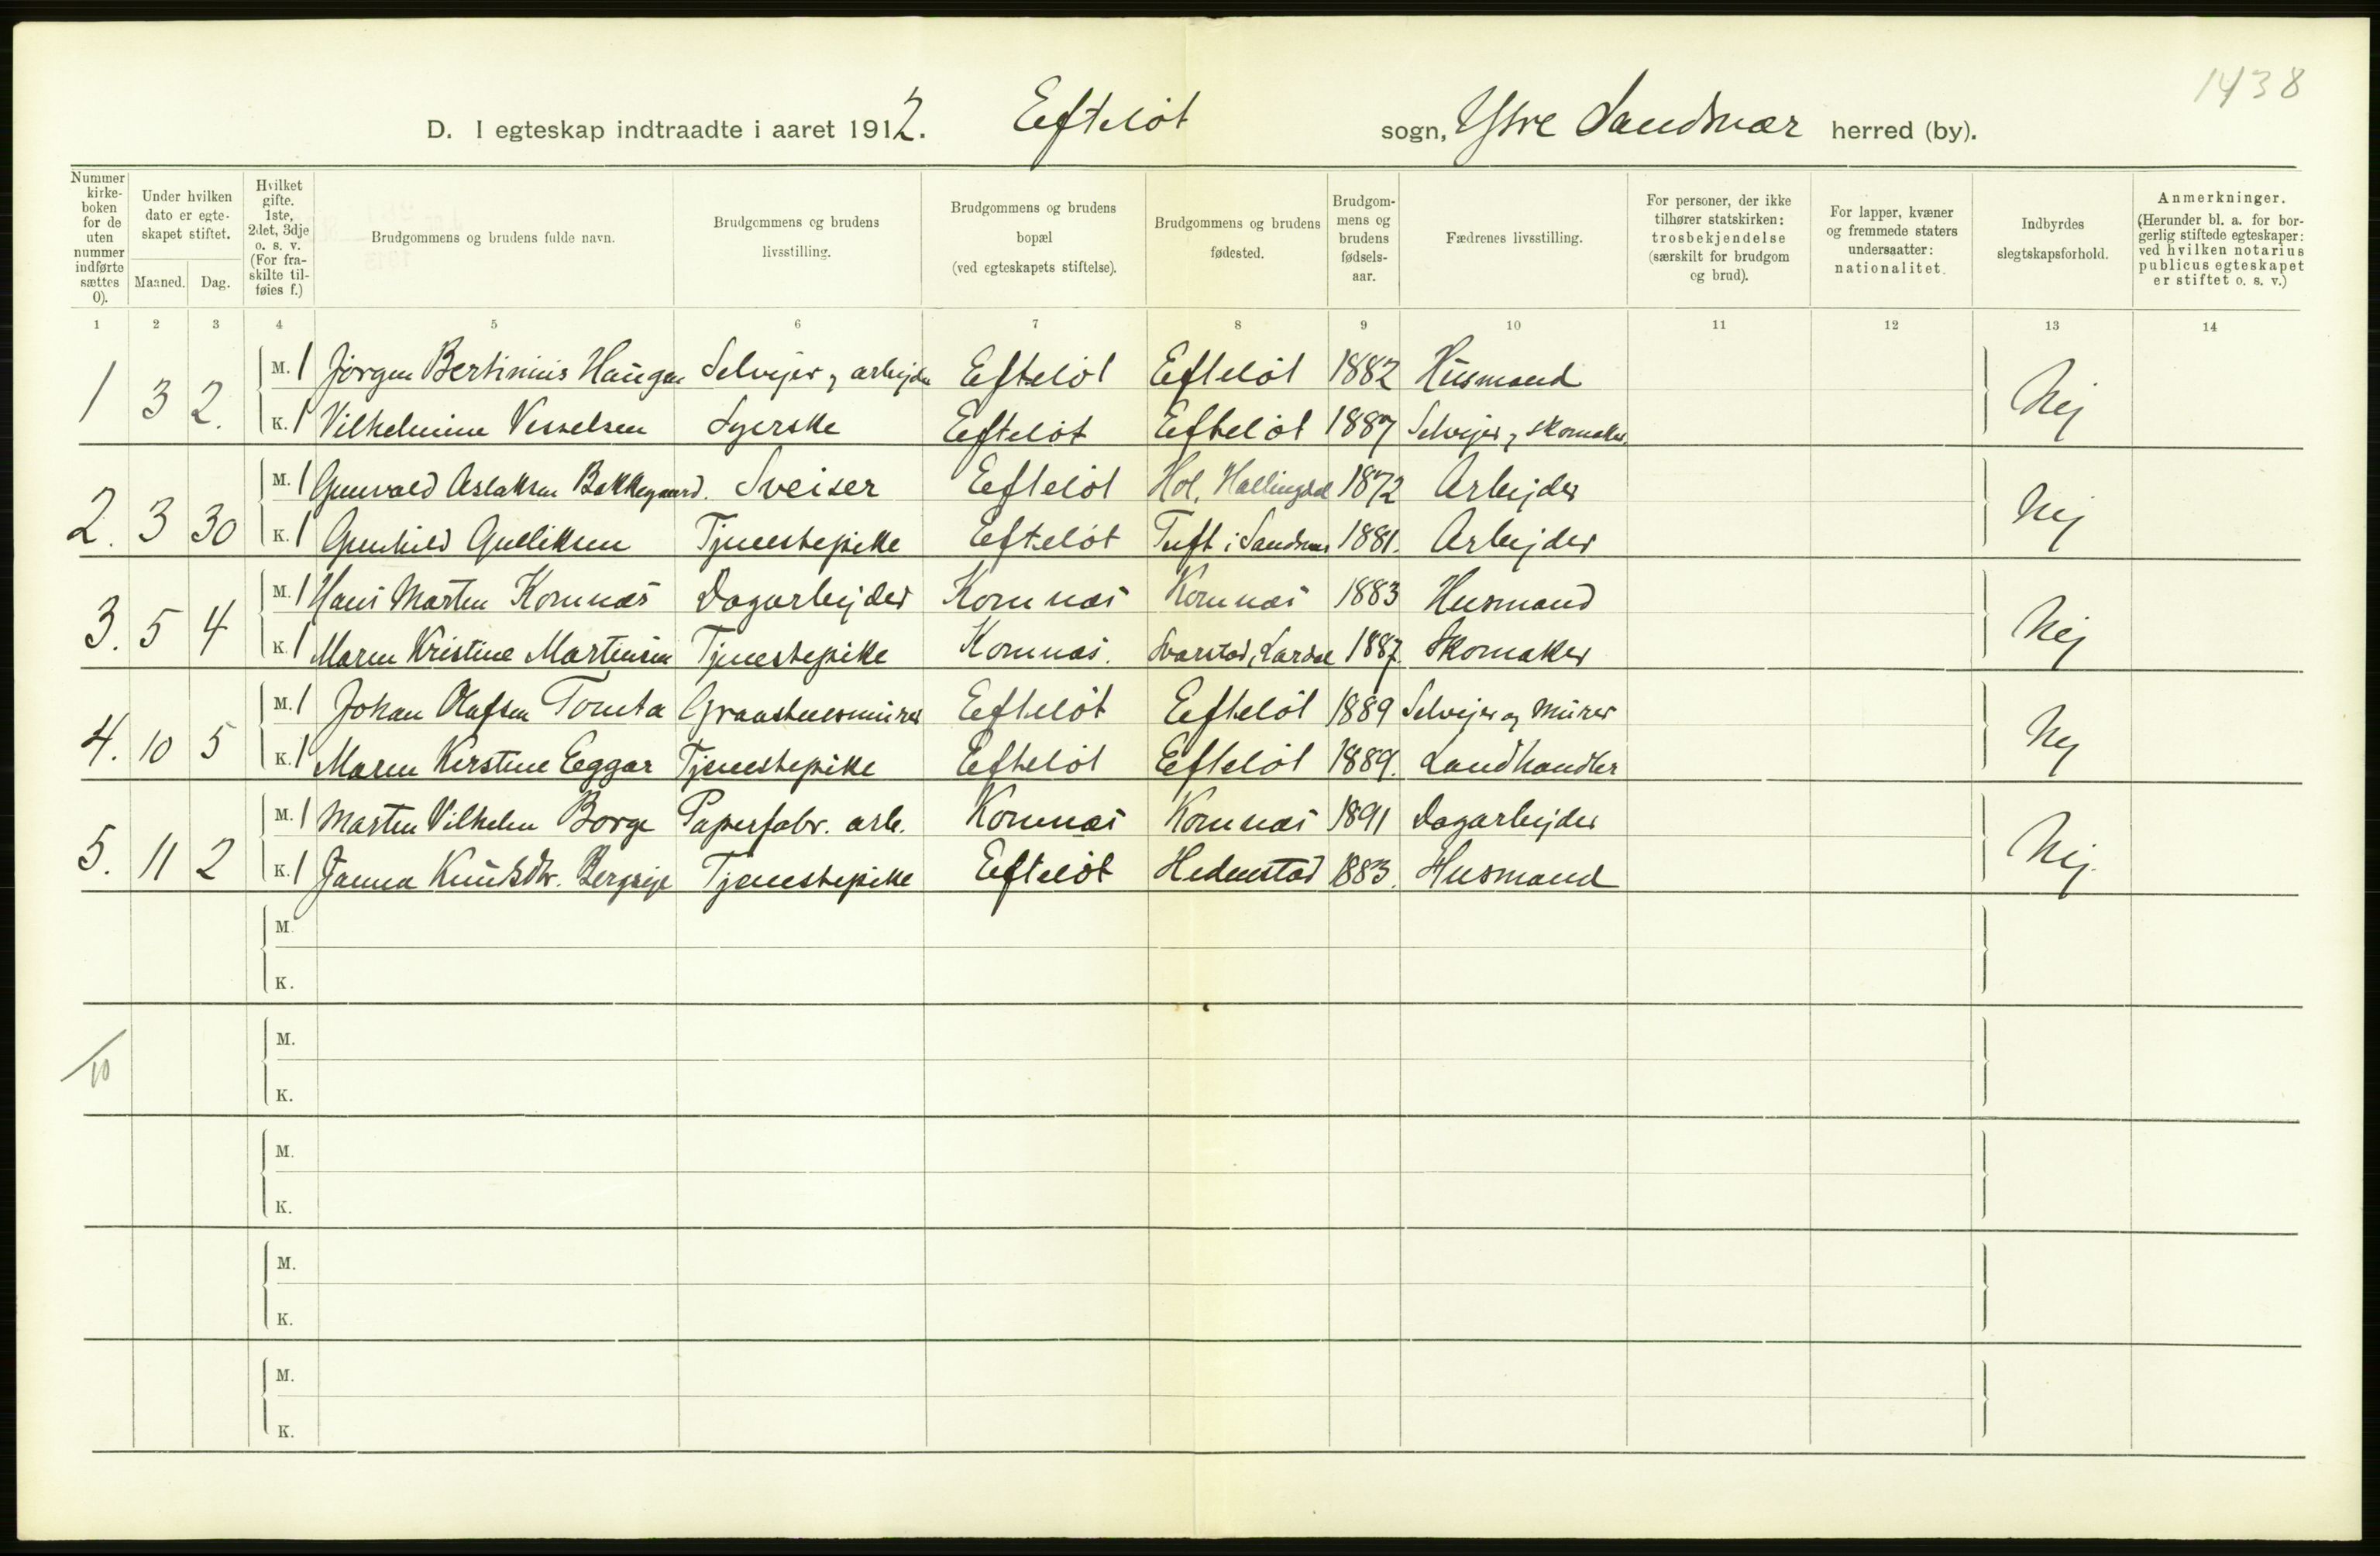 1438
D. I egteskap indtraadte i aaret 1912. Efteløt sogn, Ytre Sandsvær herred (by).
Nummer kirkeboken for de uten nummer indførte sættes 0).
Under hvilken dato er egteskapet stiftet.
Maaned. Dag.
Hvilket gifte. 1ste, 2det, 3dje o. s. v. (For fraskilte tilføies f.)
Brudgommens og brudens fulde navn.
Brudgommens og brudens livsstilling.
Brudgommens og brudens bopæl (ved egteskapets stiftelse).
Brudgommens og brudens fødested.
Brudgommens og brudens fødselsaar.
Fædrenes livsstilling.
For personer, der ikke tilhører statskirken: trosbekjendelse (særskilt for brudgom og brud).
For lapper, kvæner og fremmede staters undersaatter: nationalitet.
Indbyrdes slegtskapsforhold.
Anmerkninger. (Herunder bl. a. for borgerlig stiftede egteskaper: ved hvilken notarius publicus egteskapet er stiftet o. s. v.)
1 2 3 4 5 6 7 8 9 10 11 12 13 14
1 3 2. M. 1 Jørgen Bertinius Haugen Selveier og arbejder Efteløt Efteløt 1882 Husmand Nej
K. 1 Vilhelmine Vesselsen Syerske Efteløt Efteløt 1887 Selvejer og skomaker
2. 3 30 M. 1 Gunvald Aslaksen Bakkegaard. Sveiser Efteløt Hol, Hallingdal 1872 Arbejder Nej
K. 1 Gunhild Gulliksen Tjenestepike Efteløt Tuft i Sandsvær 1881. Arbejder
3. 5 4 M. 1 Hans Martin Komnæs Dagarbejder Komnæs Komnæs 1883 Husmand Nej
K. 1 Maren Kristine Martinsen Tjenestepike Komnæs. Svarstad, Lardal 1887. Skomaker
4. 10 5 M. 1 Johan Olafsen Tomta Graastensmurer Efteløt Efteløt 1889 Selvejer og murer Nej
K. 1 Maren Kirstine Eggar Tjenestepike Efteløt Efteløt 1889. Landhandler
5. 11 2 M. 1 Martin Vilhelm Borge Papirfabr. arb. Komnæs Komnæs 1891 Dagarbejder Nej.
K. 1 Janna Knudsdtr. Bergseje Tjenestepike Efteløt Hedenstad 1883. Husmand
M.
K.
10
M.
K.
M.
K.
M.
K.
M.
K.